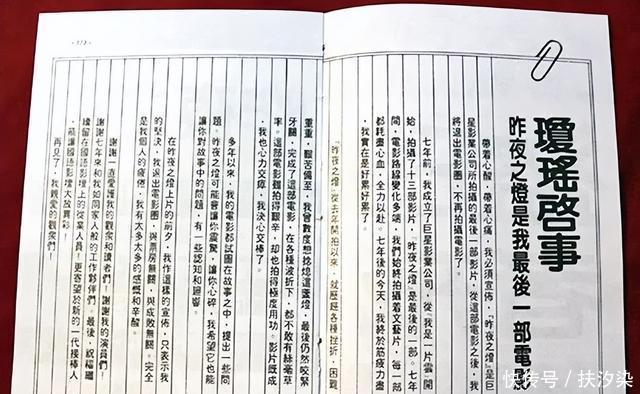 瓊瑤啓事
昨夜之燈是我最後一部電影
帶着心酸，帶着心痛，我必須宣佈，「昨夜之燈」是巨
星影業公司所拍攝的最後一部影片，從這部電影之後，我
將退出電影圈，不再拍攝電影了。
七年前，我成立了巨星影業公司，從「我是一片雲」開
始，拍攝了十三部影片，「昨夜之燈」是最後的一部。七年
間，電影路線變化多端，我們始終拍攝着文藝片，每一部
都耗盡心血，全力以赴。七年後的今天，我終於筋疲力盡
，我實在是好累好累了。
「昨夜之燈」從去年開拍以來，就歷經各種挫折，困難
重重，艱苦備至，我曾數度想捻熄這盞燈，最後仍然咬緊
牙關，完成了這部電影，在各種波折下，都不敢有絲毫草
率。這部電影雖拍得艱辛，却也拍得極度用功，影片既成
，我也心力交瘁，我決心交棒了。
多年以來，我的電影都試圖在故事之中，提出一些問
題。昨夜之燈可能會讓你震驚，讓你心碎，我希望它也能
讓你對故事中的問題，有一些認知和迴響。
在昨夜之燈上片的前夕，我作這樣的宣佈，只表示我
的堅決，我退出電影圈，與票房無關，與成敗無關。完全
是我個人的疲倦，我有太多太多的感慨和辛酸。
謝謝一直愛護我的觀衆和讀者們！謝謝我的演員們！
謝謝七年來和我如同家人般的工作夥伴們。最後，祝福繼
續留在國語影壇上的從業人員！更寄望於新的一代接棒人
，能讓國語影壇大放異彩！
再見了，我親愛的觀衆們！
·173·
快传号/扶汐染